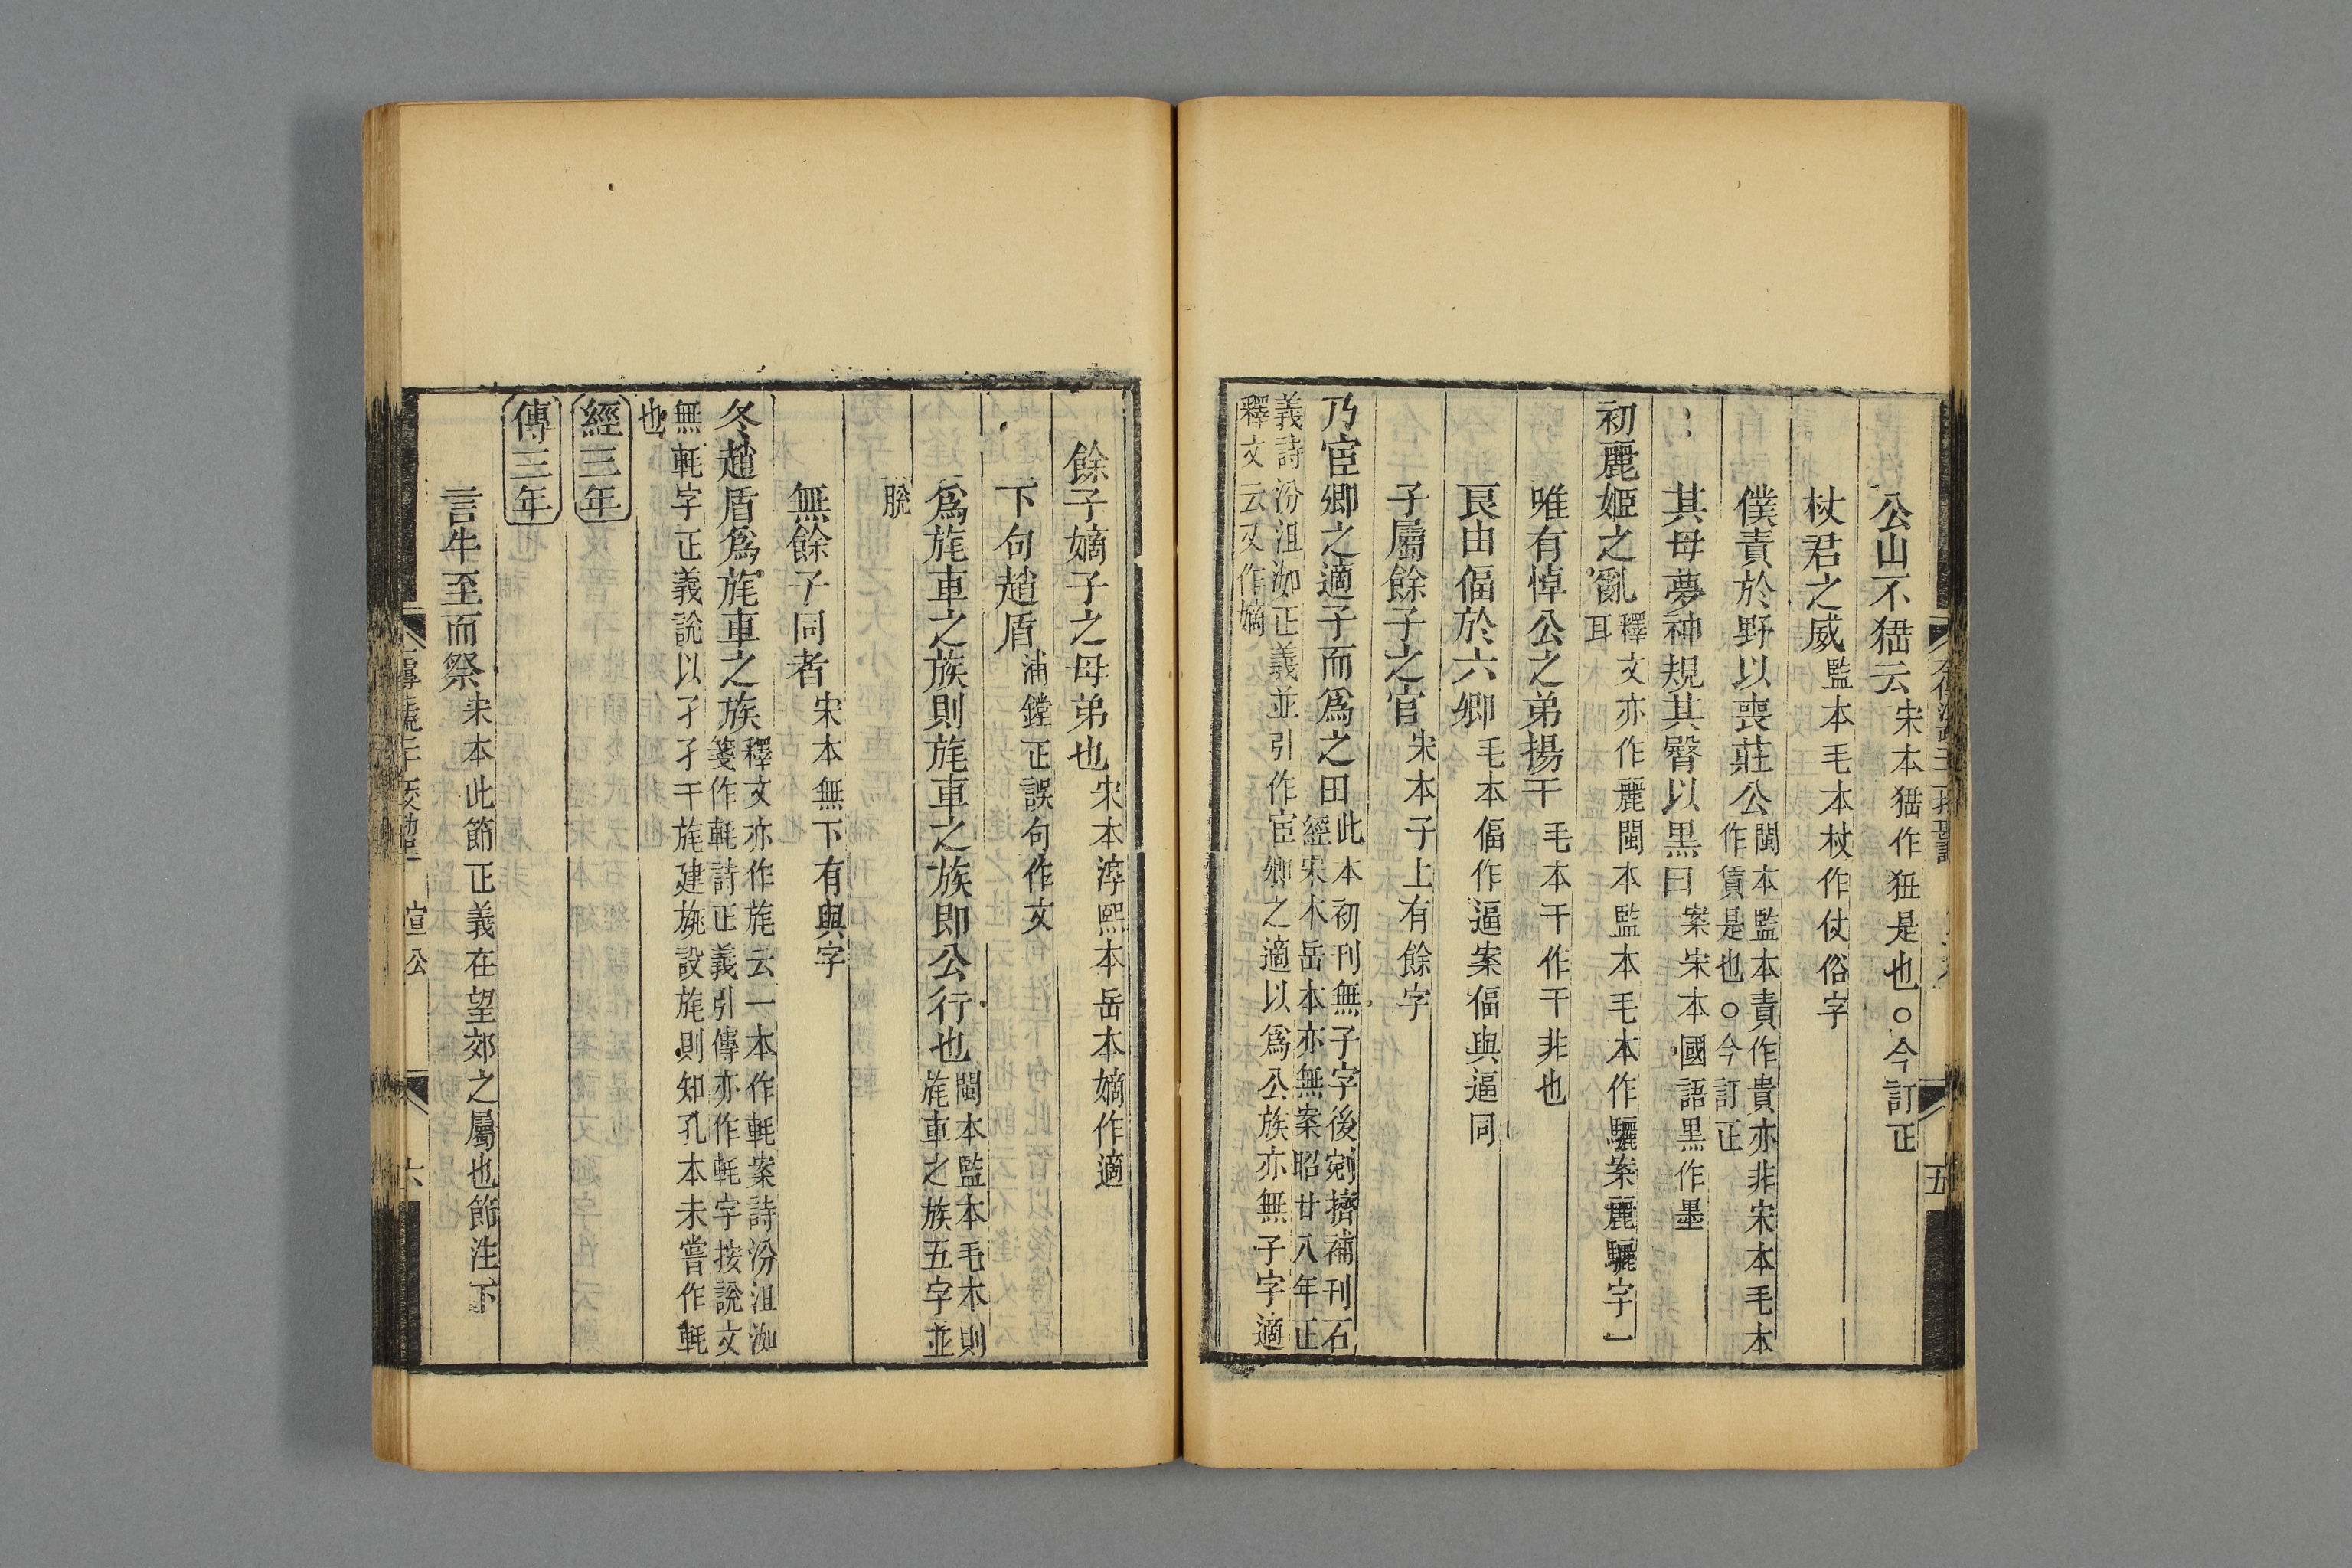 公山不狧云宋本狧作狃是也○今訂正
杖君之威監本毛本杖作仗俗字
僕責於野以喪莊公閩本監本責作貴亦非宋本毛本
作賃是也○今訂正
其母夢神規其臀以黑曰案宋本國語黑作墨
初麗姬之亂釋文亦作麗閩本監本毛本作驪案麗驪字一
耳
唯有悼公之弟揚干毛本干作干非也
艮由偪於六卿毛本偪作逼案偪與逼同
子屬餘子之官宋本子上有餘字
乃宦卿之適子而爲之田此本初刊無子字後剜擠補刊石
經宋本岳本亦無案昭廿八年正
義詩汾沮洳正義並引作宦卿之適以爲公族亦無子字適
釋文云又作嫡
五
餘子嫡子之母弟也宋本淳熙本岳本嫡作適
下句趙盾浦鏜正誤句作文
爲旄車之族則旄車之族即公行也閩本監本毛本則
旄車之族五字並
脫
無餘子同者宋本無下有與字
冬趙盾爲旄車之族釋文亦作旄云一本作軞案詩汾沮洳
箋作軞詩正義引傳亦作軞字按說文
無軞字正義說以孑孑干旄建旐設旄則知孔本未嘗作軞
也
經三年
傳三年
言牛至而祭宋本此節正義在望郊之屬也節注下
宣公
六